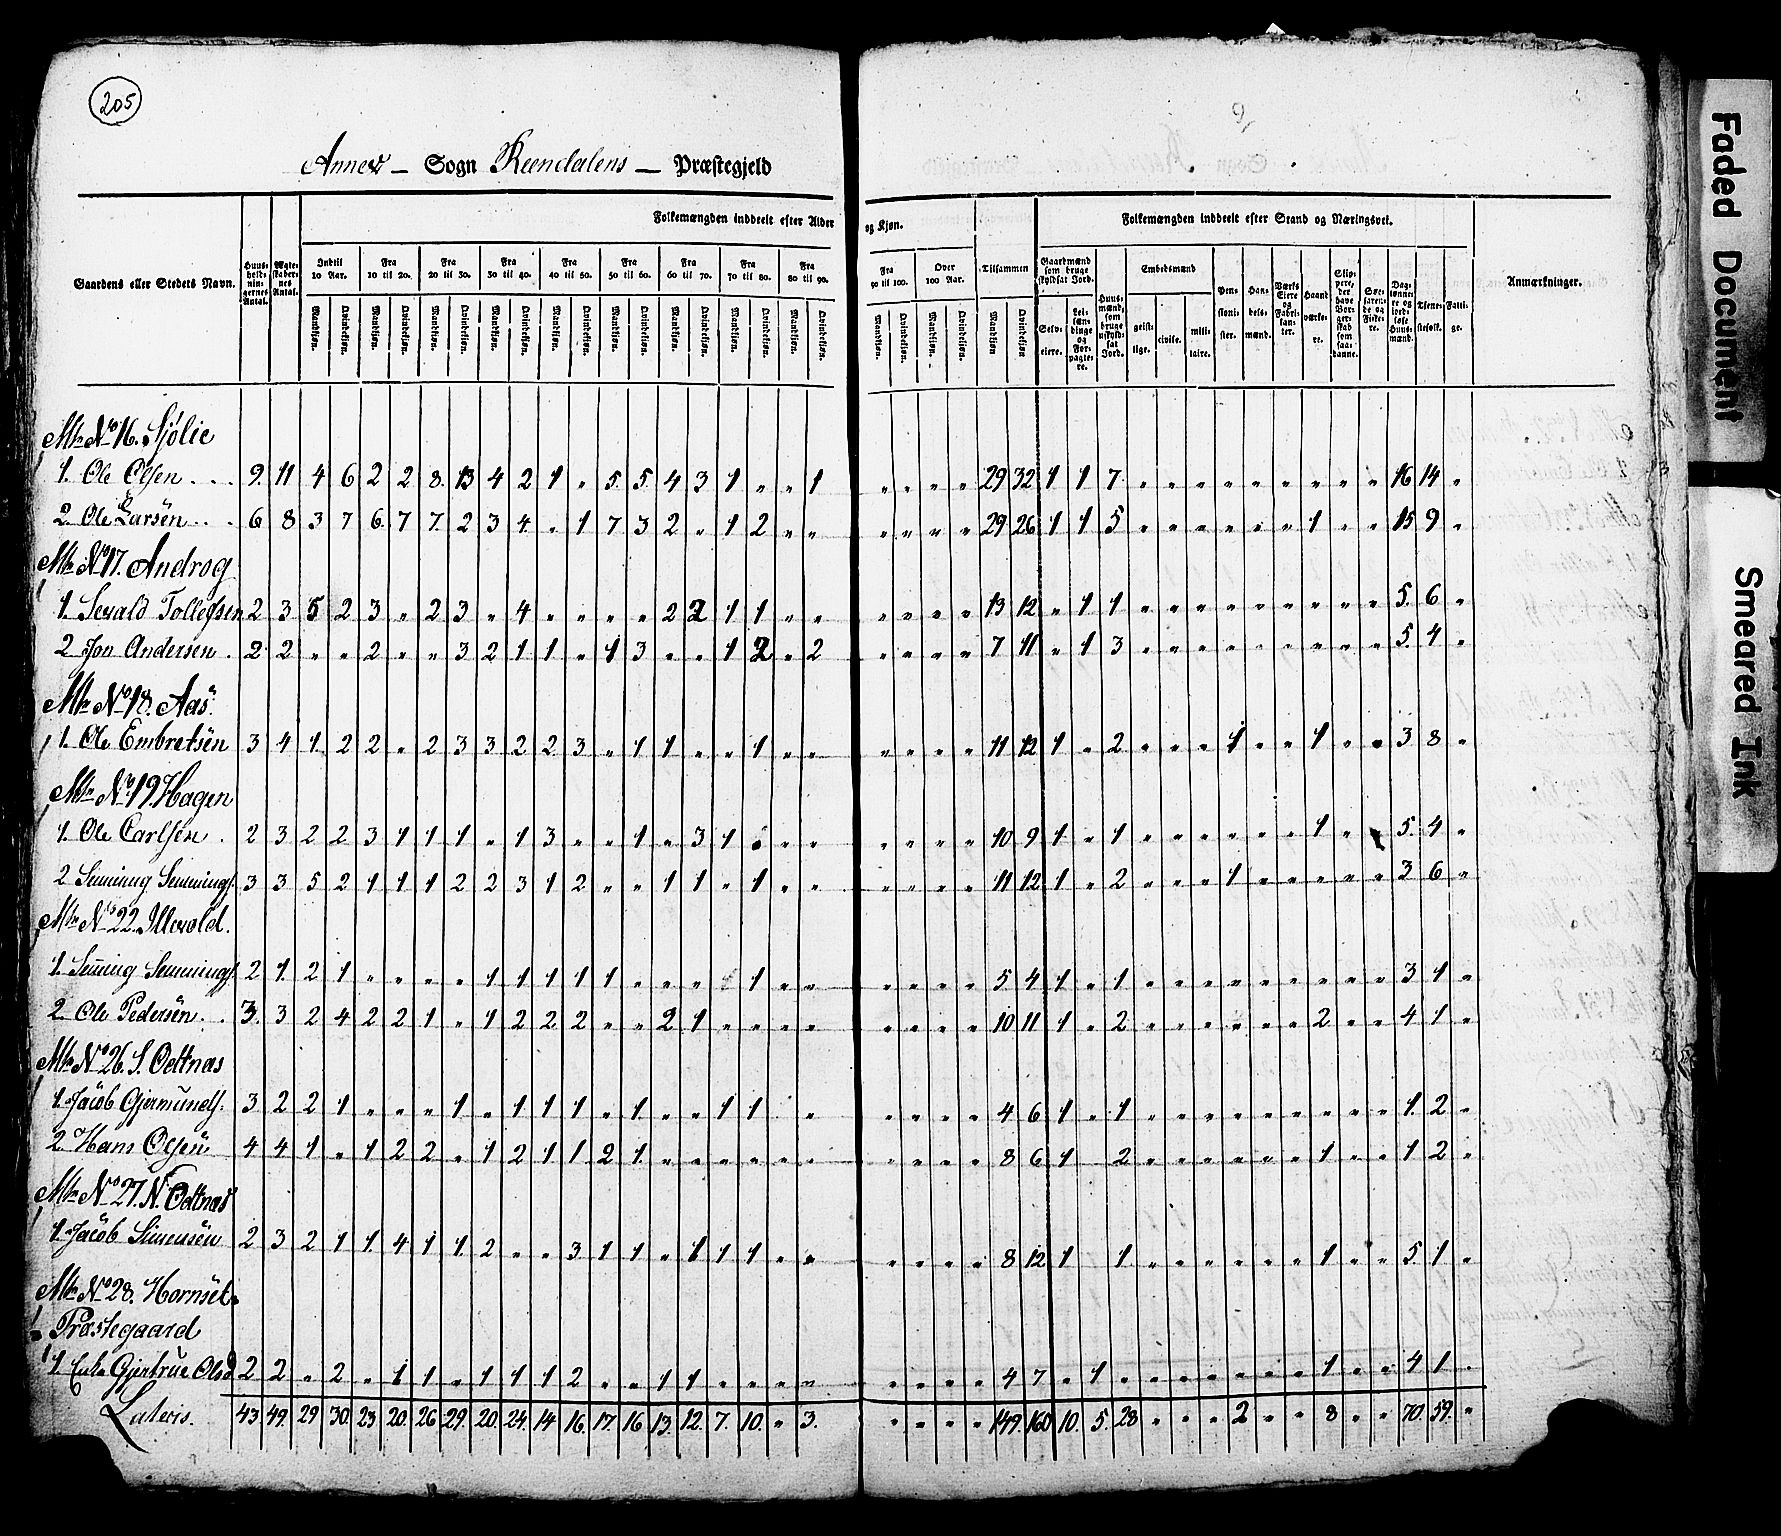 205
Annex — Sogn Reendalens — Præstegjeld
Folkemængden inddeelt efter Alder og Kjøn.
Folkemængden inddeelt efter Stand og Næringsvei.
Gaardens eller Stedets Navn.
Huusholdningernes Antal.
Ægteskabernes Antal.
Indtil 10 Aar.
Fra 10 til 20.
Fra 20 til 30.
Fra 30 til 40.
Fra 40 til 50.
Fra 50 til 60.
Fra 60 til 70.
Fra 70 til 80.
Fra 80 til 90.
Fra 90 til 100.
Over 100 Aar.
Tilsammen
Mandkjøn. Qvindekjøn.
Gaardmænd som bruge skyldsat Jord.
Selveiere.
Leilændinge og Forpagtere.
Huusmænd, som bruge uskyldsat Jord.
Embedsmænd
geistlige. civile. militaire.
Pensionister.
Handelsmænd.
Værks Eiere og Fabrikanter.
Haandværkere.
Skippere, der have Borgerskab som saadanne.
Søefarende og Fiskere.
Daglønnere og jordløse Huusmænd.
Tjenestefolk.
Fattige.
Anmærkninger.
Mtr No 16. Sjølie
1. Ole Olsen . . . 9. 11 4 6 2 2 8. 13 4 2 1 „ 5. 5. 4 3 1 „ „ 1 „ „ „ „ 29 32 1 1 7 „ „ „ „ „ „ „ „ „ 16 14 „
2. Ole Larsen . . . 6 8 3 7 6. 7 7. 2 3 4. „ 1 7 3 2 „ 1 2 „ „ „ „ „ „ 29 26 1 1 5 „ „ „ „ „ „ 1 „ „ 15 9 „
Mtr No 17. Androg
1. Sevald Tollefsen 2 3 5 2 3 „ 2 3 „ 4 „ „ „ „ 2 2 1 1 „ „ „ „ „ „ 13 12 „ 1 1 „ „ „ „ „ „ „ „ „ 5. 6 „
2 Jon Andersen . 2 2 „ „ 2 „ „ 3 2 1 1 „ 1 3 „ „ 1 2 „ 2 „ „ „ „ 7 11 „ 1 3 „ „ „ „ „ „ „ „ „ 5. 4 „
Mtr No 18. Aas
1. Ole Embretsen 3 4 1. 2 2 „ 2 3 3 2 2 3 „ 1 1 „ „ 1 „ „ „ „ „ „ 11 12 1 „ 2 „ „ „ 1 „ „ 1 „ „ 3 8 „
Mtr No 19 Hagen
1. Ole Carlsen . 2 3 2 2 3 1 1 1 „ 1 3 „ „ 1 „ 3 1 „ „ „ „ „ „ „ 10 9 1 „ 1 „ „ „ „ „ „ 1 „ 5. 4 „
2 Semming Semmingss. 3 3 5 2 1 1 1 2 2 3 1 2 „ „ 1 1 „ 1 „ „ „ „ „ „ 11 12 1 „ 2 „ „ „ 1 „ „ „ „ „ 3 6 „
Mtr No 22. Illevold.
1. Semming Semmingss. 2 1. 2 1 „ „ „ „ 1 1 1 1 1 „ „ „ 1 „ „ „ „ „ „ 5 4 1 „ 1 „ „ „ „ „ „ „ „ „ 3 1 „
2. Ole Pedersen . . 3. 3 2 4 2 2 1 „ 1 2 2 2 „ „ 2 1 „ „ „ „ „ „ „ „ 10 11 1 „ 2 „ „ „ „ „ „ 2 „ „ 4 1 „
Mtr No 26. S. Oettnas
1. Jacob Gjermunds. 3 2 2 1 „ „ „ 1 „ 1 1 1 „ 1 „ „ 1 1 „ „ „ „ „ 4 6 1 „ 1 „ „ „ „ „ „ „ „ „ 1 2 „
2. Hans Olsen 4 4 1 „ 1 2 2 „ 1 2 1 1 2 1 „ „ „ „ „ „ „ „ „ „ 8 6 1 2 „ „ „ „ „ „ 1 „ „ 1 2 „
Mtr No 27. N. Oettnas
1. Jacob Simensen 2 3 2 1 1. 4 1 1 2 „ „ 3 1 1 „ 1 1 1 „ „ „ „ „ „ 8 12 1 1 „ „ „ „ „ „ 1 „ „ 5. 1 „
Mtr No 28. Hornset
Præstegaard
1. Enke Gjertrue Olsd 2 2 „ 2 „ 1 1 „ 1 1 1 2 „ „ 1 1 „ „ „ „ „ „ „ „ 4 7 „ 1 „ „ „ „ „ „ „ 1 „ „ 4 1 „
Lateris. 43. 49. 29 30. 23 20. 26 29. 20. 24. 14 16. 17. 16 13. 12. 7. 10. „ 3. „ „ „ „ 149. 160 10. 5. 28 „ „ „ 2 „ „ 8 „ „ 70. 59. „
Faded Document
Smeared Ink